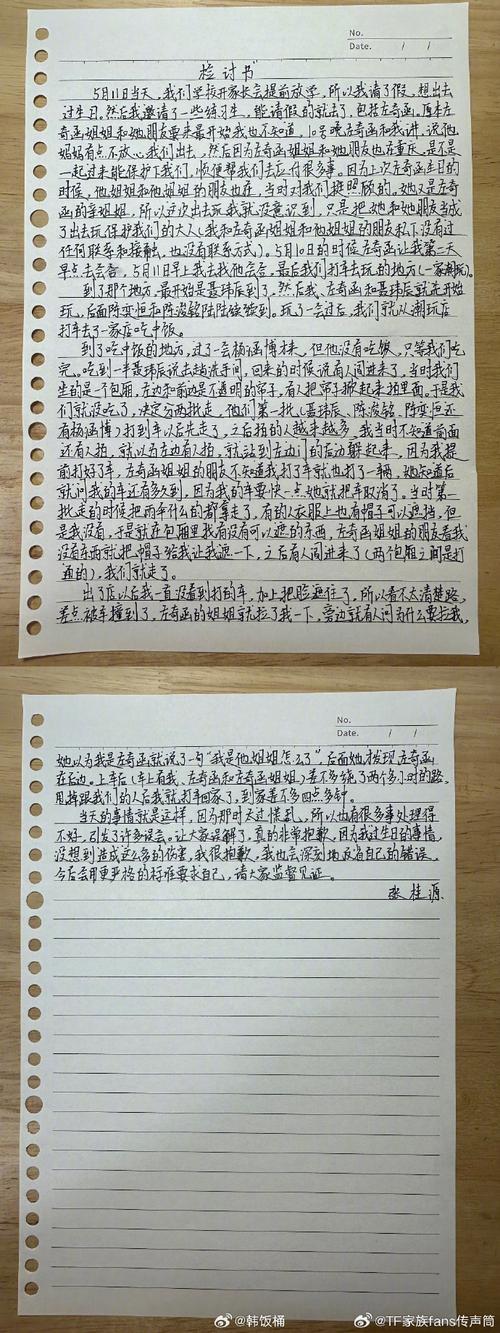 No.
Date. / /
检讨书
5月11日当天，我们学校开家长会提前放学，所以我请了假，想出去
过生日。然后我邀请了一些练习生，能请假的就去了，包括左奇函。原本左
奇函姐姐和她朋友要来最开始我也不知道，10号晚左奇函和我讲，说他
妈妈有点不放心我们出去，然后因为左奇函姐姐和她朋友也在重庆，是不是
一起过来能保护下我们，顺便帮我们去应付很多事。因为上次左奇函生日的
时候，他姐姐和他姐姐的朋友也在，当时对我们挺照顾的，她又是左奇
函的亲姐姐，所以这次出去玩我就没意识到，只是把她和她朋友当成
了出去玩保护我们的大人（我和左奇函姐姐和他姐姐的朋友私下没有过
任何联系和接触，也没有联系方式）。5月10日的时候左奇函让我第二天
早点去会合，5月11日早上我去找他会合，最后我们打车去玩的地方（一家潮玩店）。
到了那个地方，最开始是聂玮辰到了，然后我、左奇函和聂玮辰就先开始
玩，后面陈奕恒和陈浚铭陆陆续续到。玩了一会过后，我们就从潮玩店
打车去了一家店吃中饭。
到了吃中饭的地方，过了一会杨涵博才来，但他没有吃饭，只等我们吃
完。吃到一半聂玮辰说出去趟洗手间，回来的时候说有人闯进来了，当时我们
坐的是个包厢，左边和前边是不透明的帘子，有人把帘子掀起来拍里面。于是我
们就没吃了，决定分两批走，他们第一批（聂玮辰、陈浚铭、陈奕恒还
有杨涵博）打到车以后先走了，之后拍的人越来越多，我当时不知道前面
还有人拍，就以为左边有人拍，就站到左边门的后边躲起来，因为我提
前打好了车，左奇函姐姐的朋友不知道我打了车就也打了一辆，她知道后
就问我的车还有多久到，因为我的车要快一点她就把车取消了，当时第一
批走的时候把雨伞什么的都拿走了，有的人衣服上也有帽子可以遮挡，但
是我没有，于是就在包厢里找有没有可以遮的东西，左奇函姐姐的朋友看我
没有东西就把帽子给我让我遮一下，之后有人闯进来了（两个包厢之间是打
通的），我们就走了。
出了店以后我一直没看到打的车，加上把脸遮住了，所以看不太清楚路，
差点被车撞到了，左奇函的姐姐就拉了我一下，旁边就有人问为什么要拉我，
No.
Date. / /
她以为我是左奇函就说了一句“我是他姐姐怎么了”，后面她才发现左奇函
在后边。上车后（车上有我、左奇函和左奇函姐姐）差不多绕了两个多小时的路，
甩掉跟我们的人后我就打车回家了，到家差不多四点多钟。
当天的事情就是这样，因为那时太慌乱，所以也有很多事处理得
不好，引发了许多误会。让大家误解了，真的非常抱歉，因为我过生日的事情，
没想到造成这么多的伤害，我很抱歉，我也会深刻地反省自己的错误，
今后会用更严格的标准要求自己，请大家监督见证。
张桂源
@韩饭桶
@TF家族fans传声筒